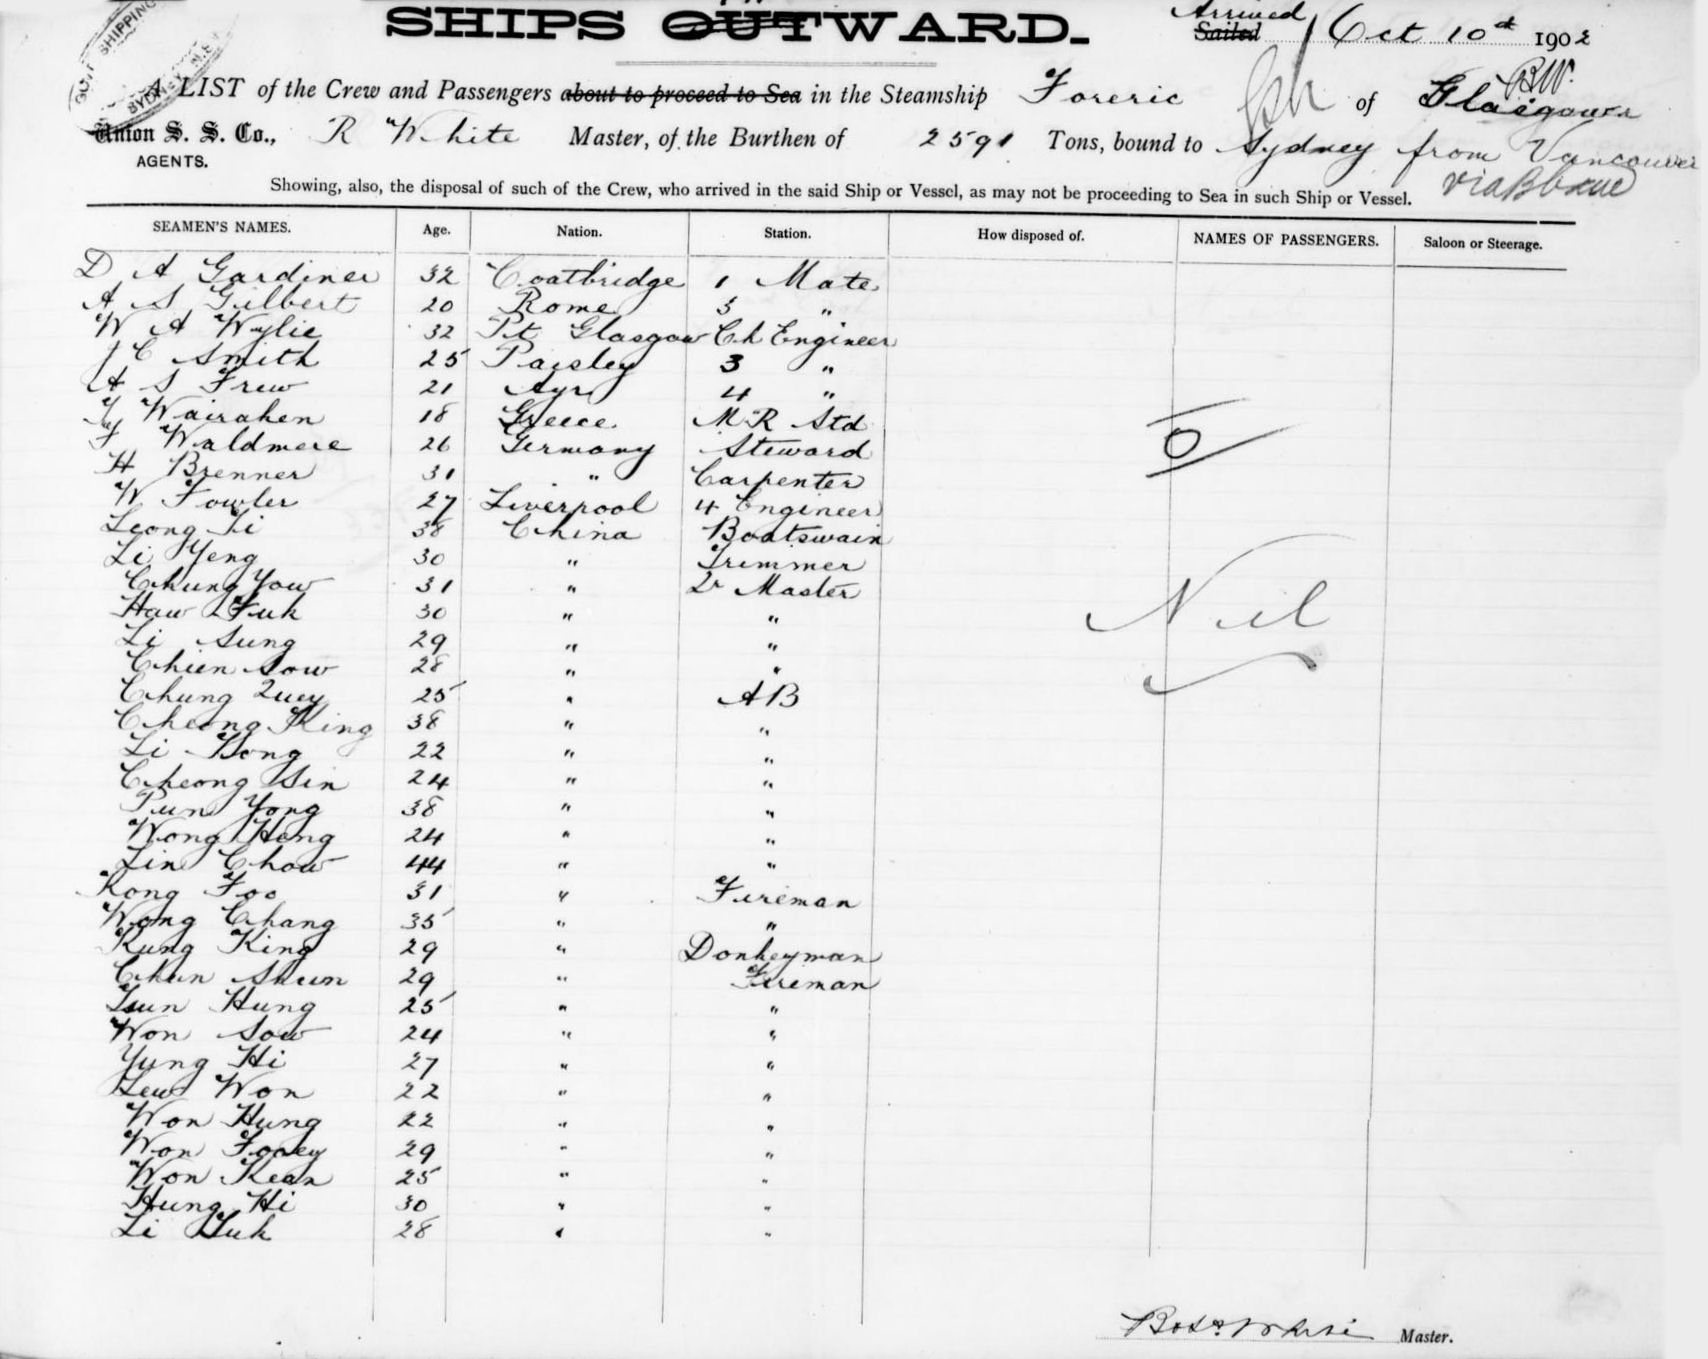 GOVT SHIPPING
SYDNEY N.S.W.
SHIPS OUTWARD.
Arrived
Sailed Oct 10th 1902
R.W.
A LIST of the Crew and Passengers about to proceed to Sea in the Steamship Foreric of Glasgow
Union S. S. Co., R White Master, of the Burthen of 2591 Tons, bound to Sydney from Vancouver
AGENTS.
via Bbane
Showing, also, the disposal of such of the Crew, who arrived in the said Ship or Vessel, as may not be proceeding to Sea in such Ship or Vessel.
SEAMEN'S NAMES. Age. Nation. Station. How disposed of. NAMES OF PASSENGERS. Saloon or Steerage.
D A Gardiner 32 Coatbridge 1 Mate
A S Gilbert 20 Rome 3 "
W A Wylie 32 Pt Glasgow Ch Engineer
J C Smith 25 Paisley 3 "
A S Frew 21 Ayr 4 "
Wairaken 18 Greece M R Std
F Waldmere 26 Germany Steward
H Brenner 31 " Carpenter
W Fowler 27 Liverpool 4 Engineer
Leong Li 38 China Boatswain
Li Yeng 30 " Trimmer
Chung Yow 31 " Qr Master
Haw Fuk 30 " "
Nil
Li Sung 29 " "
Chien Sow 28 " "
Chung Quey 25 " AB
Cheong King 38 " "
Li Bong 22 " "
Cheong Sin 24 " "
Pun Yong 38 " "
Wong Hong 24 " "
Lin Chow 44 " "
Kong Foo 31 " Fireman
Wong Chang 35 " "
Kung King 29 " Donkeyman
Chun Shun 29 " Fireman
Hung 25 " "
Won Sow 24 " "
Yung Hi 27 " "
Lew Won 22 " "
Won Hung 22 " "
Won Fooey 29 " "
Won Kean 25 " "
Hung Hi 30 " "
Li 28 " "
Robt White Master.